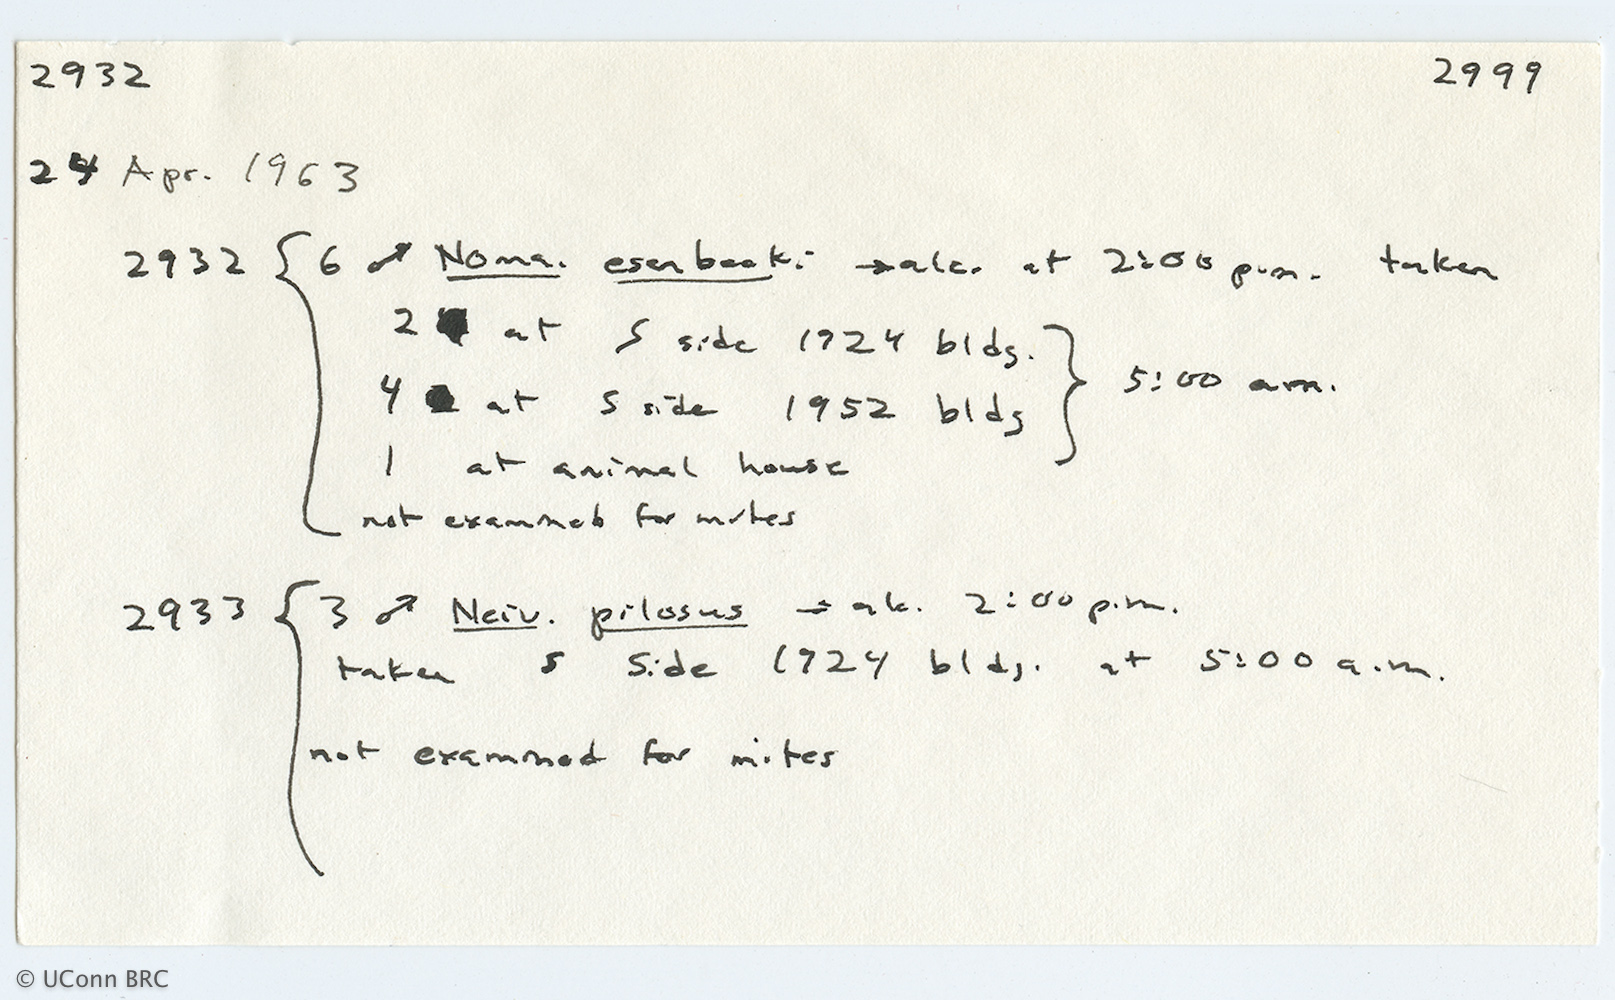 2932 2999
24 Apr. 1963
2932 { 6 ♂ Noma. esenbecki → alc. at 2:00 p.m. taken
2 at S side 1924 bldg.
4 at S side 1952 bldg } 5:00 a.m.
1 at animal house
not examined for mites
2933 { 3 ♂ Neiv. pilosus → alc. 2:00 p.m.
taken S Side 1924 bldg. at 5:00 a.m.
not examined for mites
© UConn BRC